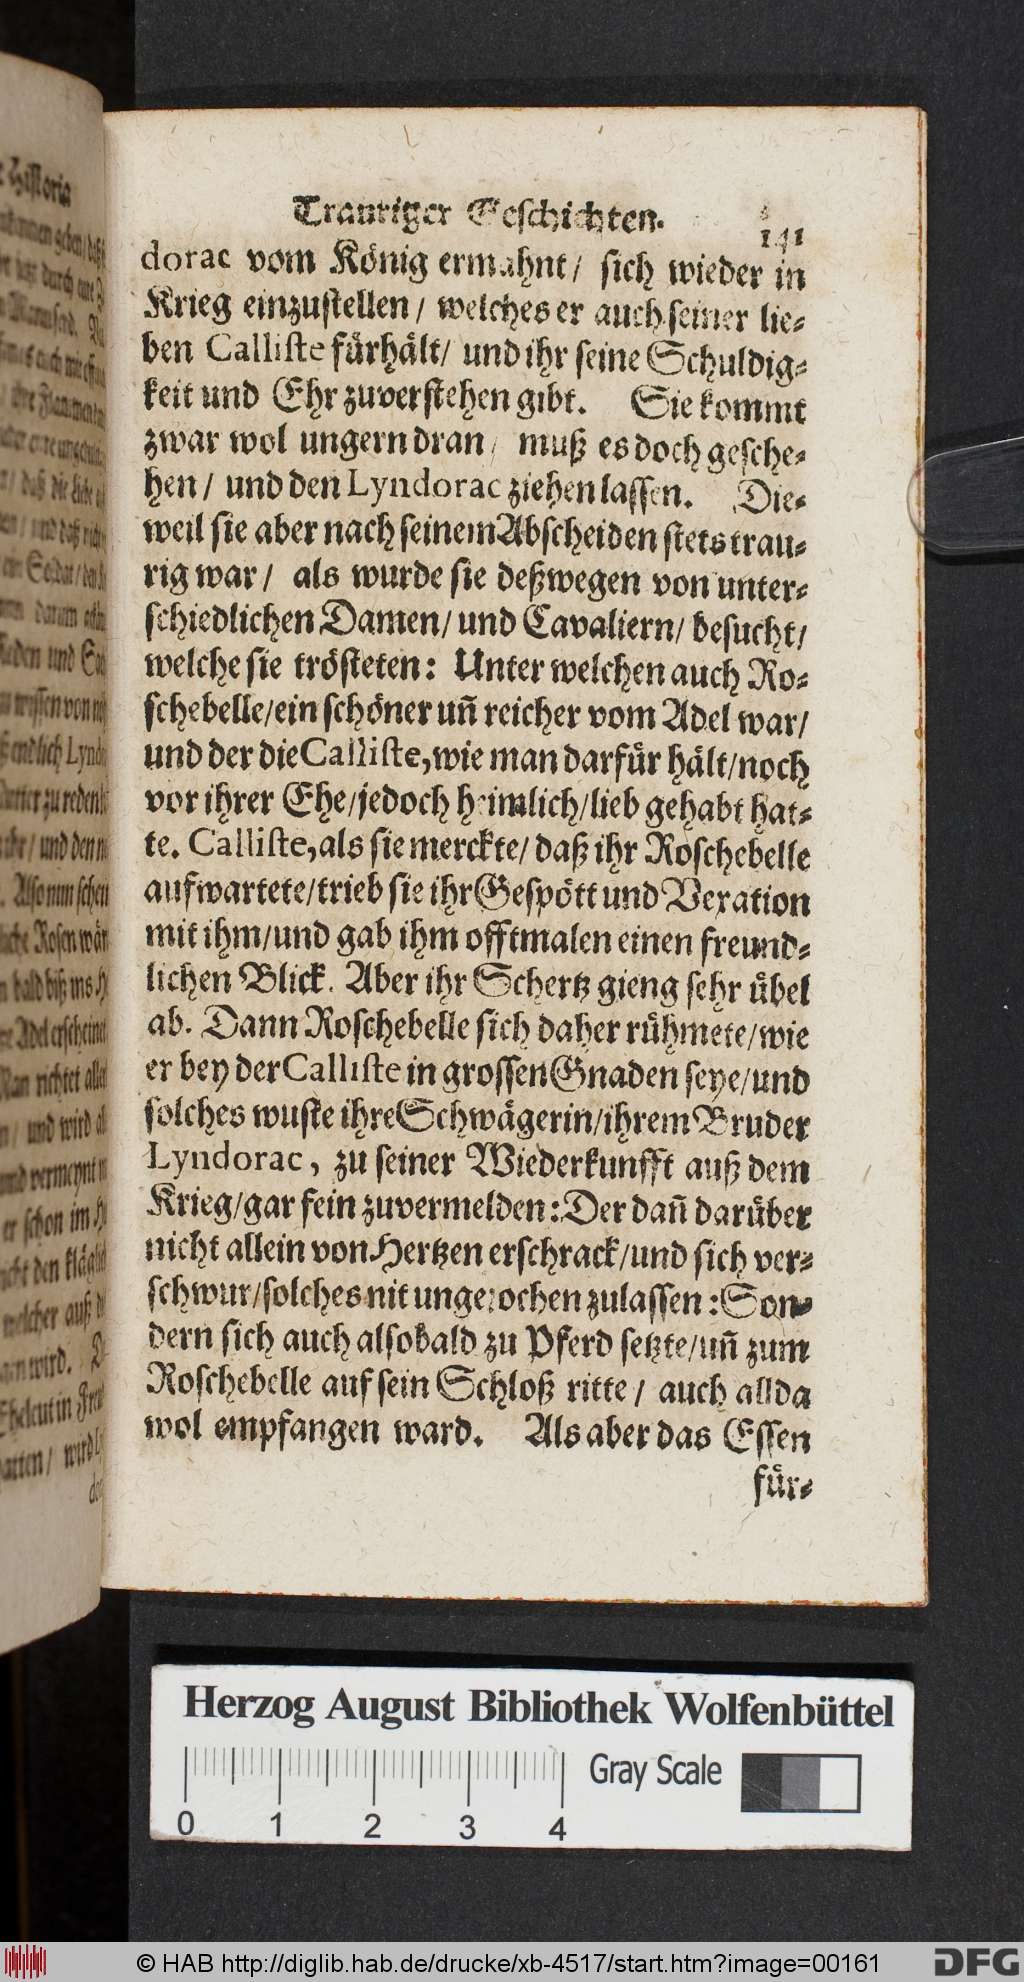 Trauriger Geschichten.
141
dorac vom König ermahnt/ sich wieder in
Krieg einzustellen/ welches er auch seiner lie-
ben Calliste fürhält/ und ihr seine Schuldig-
keit und Ehr zuverstehen gibt. Sie kommt
zwar wol ungern dran/ muß es doch gesche-
hen/ und den Lyndorac ziehen lassen. Die-
weil sie aber nach seinem Abscheiden stets trau-
rig war/ als wurde sie deßwegen von unter-
schiedlichen Damen/ und Cavaliern/ besucht/
welche sie trösteten: Unter welchen auch Ro-
schebelle/ein schöner uñ reicher vom Adel war/
und der die Calliste, wie man darfür hält/noch
vor ihrer Ehe/jedoch heimlich/lieb gehabt hat-
te. Calliste, als sie merckte/ daß ihr Roschebelle
aufwartete/trieb sie ihr Gespött und Vexation
mit ihm/und gab ihm offtmalen einen freund-
lichen Blick. Aber ihr Schertz gieng sehr übel
ab. Dann Roschebelle sich daher rühmete/wie
er bey der Calliste in grossen Gnaden seye/und
solches wuste ihre Schwägerin/ihrem Bruder
Lyndorac, zu seiner Wiederkunfft auß dem
Krieg/gar fein zuvermelden: Der dañ darüber
nicht allein von Hertzen erschrack/und sich ver-
schwur/solches nit ungerochen zulassen: Son-
dern sich auch alsobald zu Pferd setzte/uñ zum
Roschebelle auf sein Schloß ritte/ auch allda
wol empfangen ward. Als aber das Essen
für-
Herzog August Bibliothek Wolfenbüttel
Gray Scale
0 1 2 3 4
© HAB http://diglib.hab.de/drucke/xb-4517/start.htm?image=00161
DFG